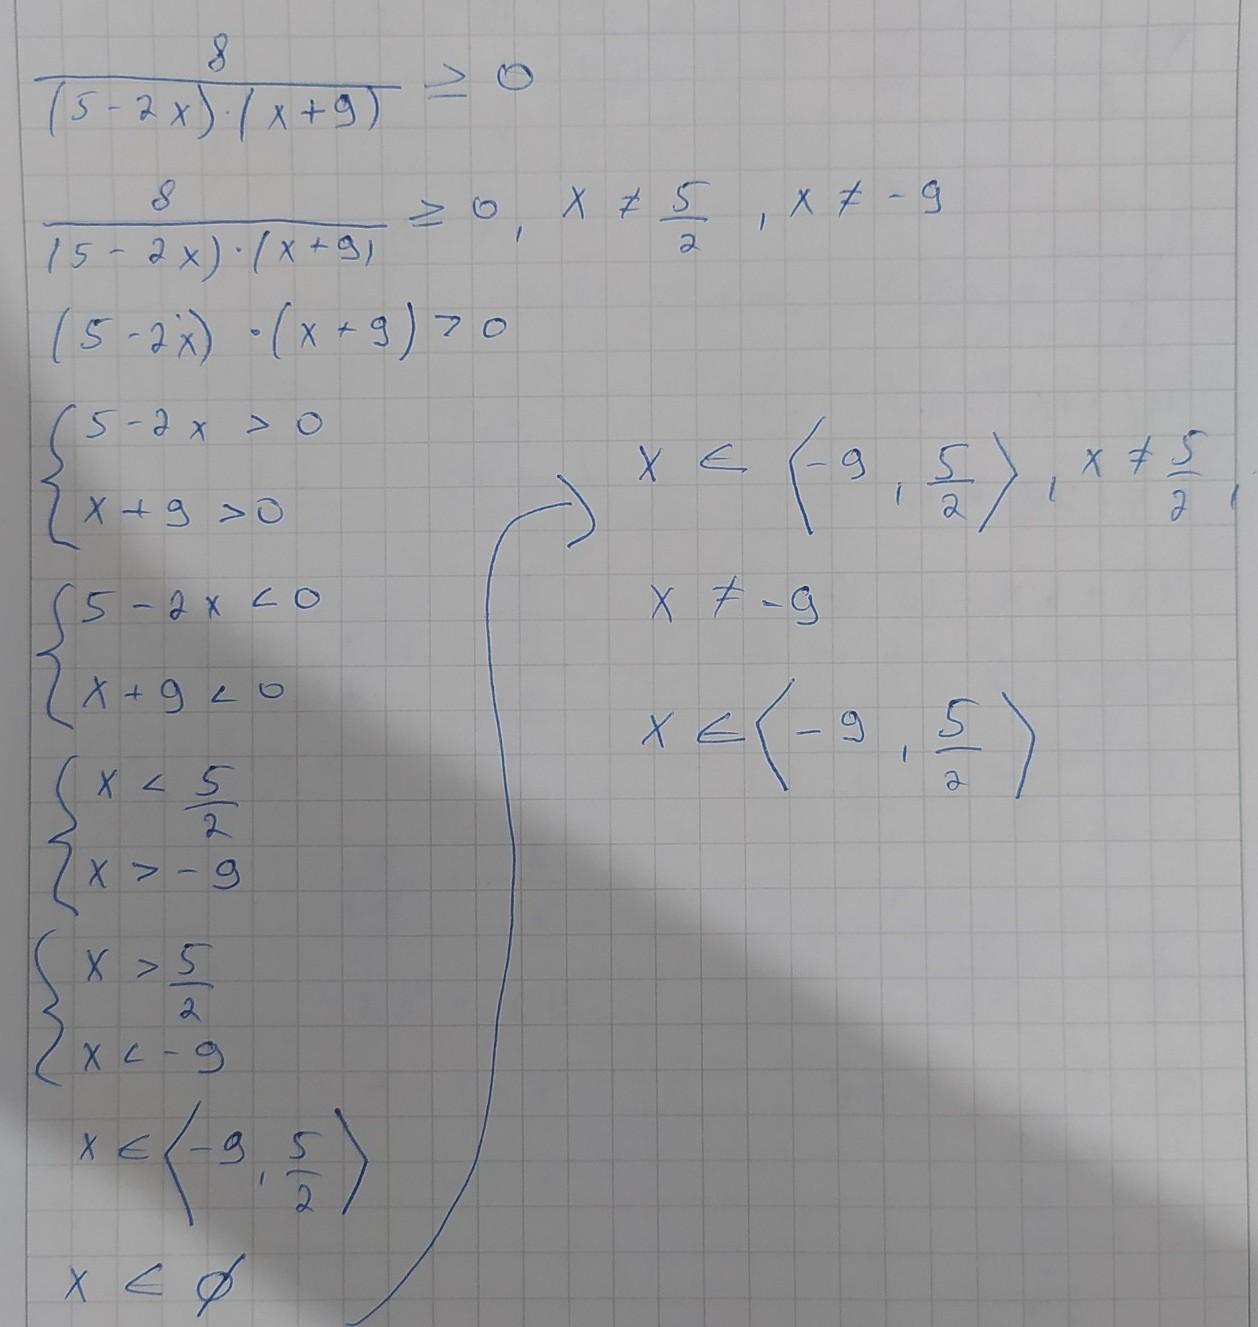 8/((5-2x)·(x+9)) ≥ 0
8/((5-2x)·(x+9)) ≥ 0, x ≠ 5/2, x ≠ -9
(5-2x)·(x+9) > 0
{ 5-2x > 0
x+9 > 0
{ 5-2x < 0
x+9 < 0
{ x < 5/2
x > -9
{ x > 5/2
x < -9
x ∈ ⟨-9, 5/2⟩
x ∈ ∅
x ∈ ⟨-9, 5/2⟩, x ≠ 5/2,
x ≠ -9
x ∈ ⟨-9, 5/2⟩